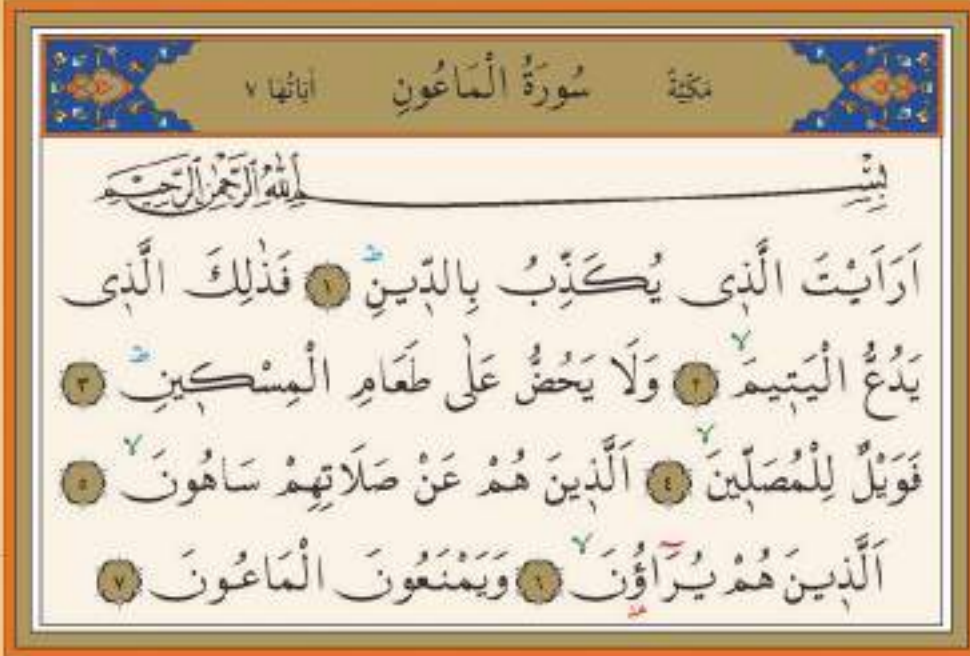 مَكِّيَّةٌ سُورَةُ الْمَاعُونِ اٰيَاتُهَا ٧
بِسْمِ اللهِ الرَّحْمٰنِ الرَّحِيمِ
اَرَاَيْتَ الَّذ۪ى يُكَذِّبُ بِالدّ۪ينِۜ ﴿١﴾ فَذٰلِكَ الَّذ۪ى
يَدُعُّ الْيَت۪يمَۙ ﴿٢﴾ وَلَا يَحُضُّ عَلٰى طَعَامِ الْمِسْك۪ينِۜ ﴿٣﴾
فَوَيْلٌ لِلْمُصَلّ۪ينَۙ ﴿٤﴾ اَلَّذ۪ينَ هُمْ عَنْ صَلَاتِهِمْ سَاهُونَۙ ﴿٥﴾
اَلَّذ۪ينَ هُمْ يُرَٓاؤُ۫نَۙ ﴿٦﴾ وَيَمْنَعُونَ الْمَاعُونَ ﴿٧﴾